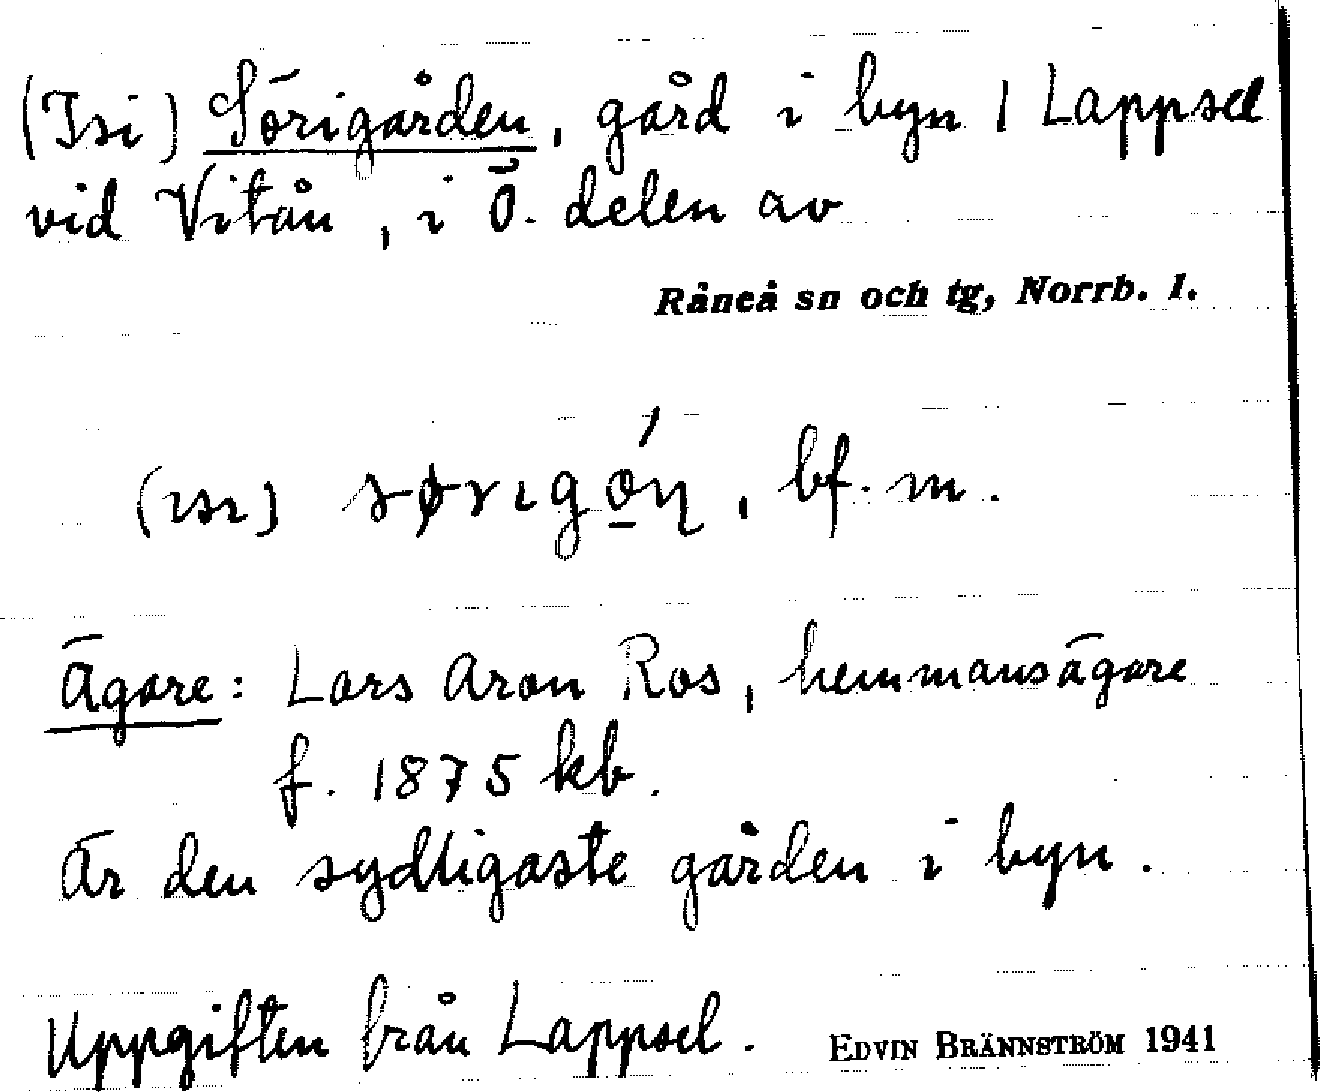 (Isi) Sörigården, gård i byn 1 Lappsel
vid Vitån, i Ö. delen av
Råneå sn och tg, Norrb. l.
(ısı) sørıgó̲ɳ, bf. m.
Ägare: Lars Aron Ros, hemmansägare
f. 1875 kb.
Är den sydligaste gården i byn.
Uppgiften från Lappsel. EDVIN BRÄNNSTRÖM 1941